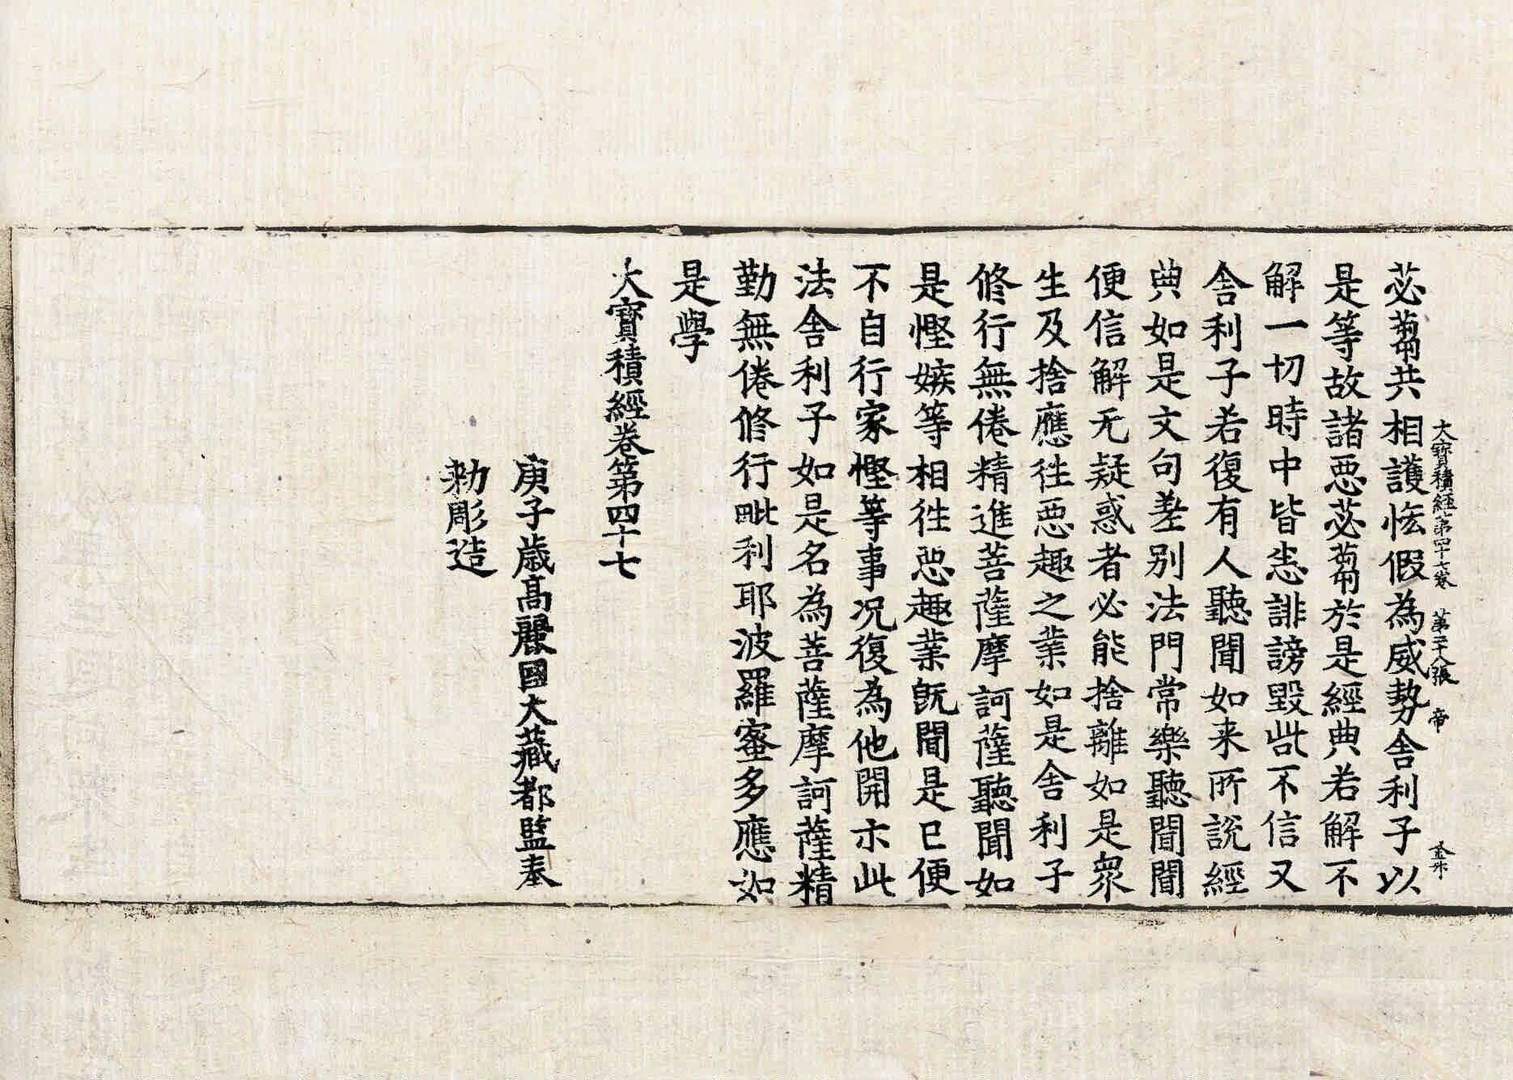 大寶積經第四十七卷 第三十八張 帝
苾蒭共相護惔假為威勢舍利子以
是等故諸惡苾蒭於是經典若解不
解一切時中皆恚誹謗毀呰不信又
舍利子若復有人聽聞如来所說經
典如是文句差别法門常樂聽聞聞
便信解无疑惑者必能捨離如是衆
生及捨應往惡趣之業如是舍利子
修行無倦精進菩薩摩訶薩聽聞如
是慳嫉等相往惡趣業旣聞是已便
不自行家慳等事况復為他開示此
法舍利子如是名為菩薩摩訶薩精
勤無倦修行毗利耶波羅蜜多應如
是學
大寶積經卷第四十七
庚子歳高麗國大藏都監奉
勅彫造